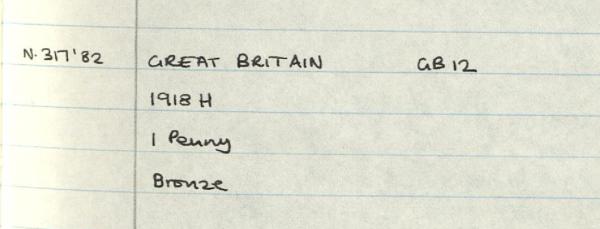 N.317'82 GREAT BRITAIN GB 12
1918 H
1 Penny
Bronze